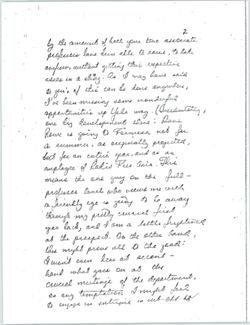 2
by the amount of hell your two associate
professors have been able to raise, to take
without getting their respective
asses in a sling. As I may have said
to you, if this can be done anywhere,
I've been missing some wonderful
opportunities up here way. (Incidentally,
one key development here: Dave
Rowe is going to not for
a summer, as originally projected,
but for an entire year, and as an
employee of Radio Free Asia. This
means the one guy on the full-
professor level who views me with
a friendly eye is going to be away
through my pretty crucial first
year back, and I am a little
at the prospect. On the other hand,
this might prove all to the good:
I won't even hear at second-
hand what goes on at the
crucial meetings of the department,
so any temptation I might feel
to engage in intrigue is cut off at